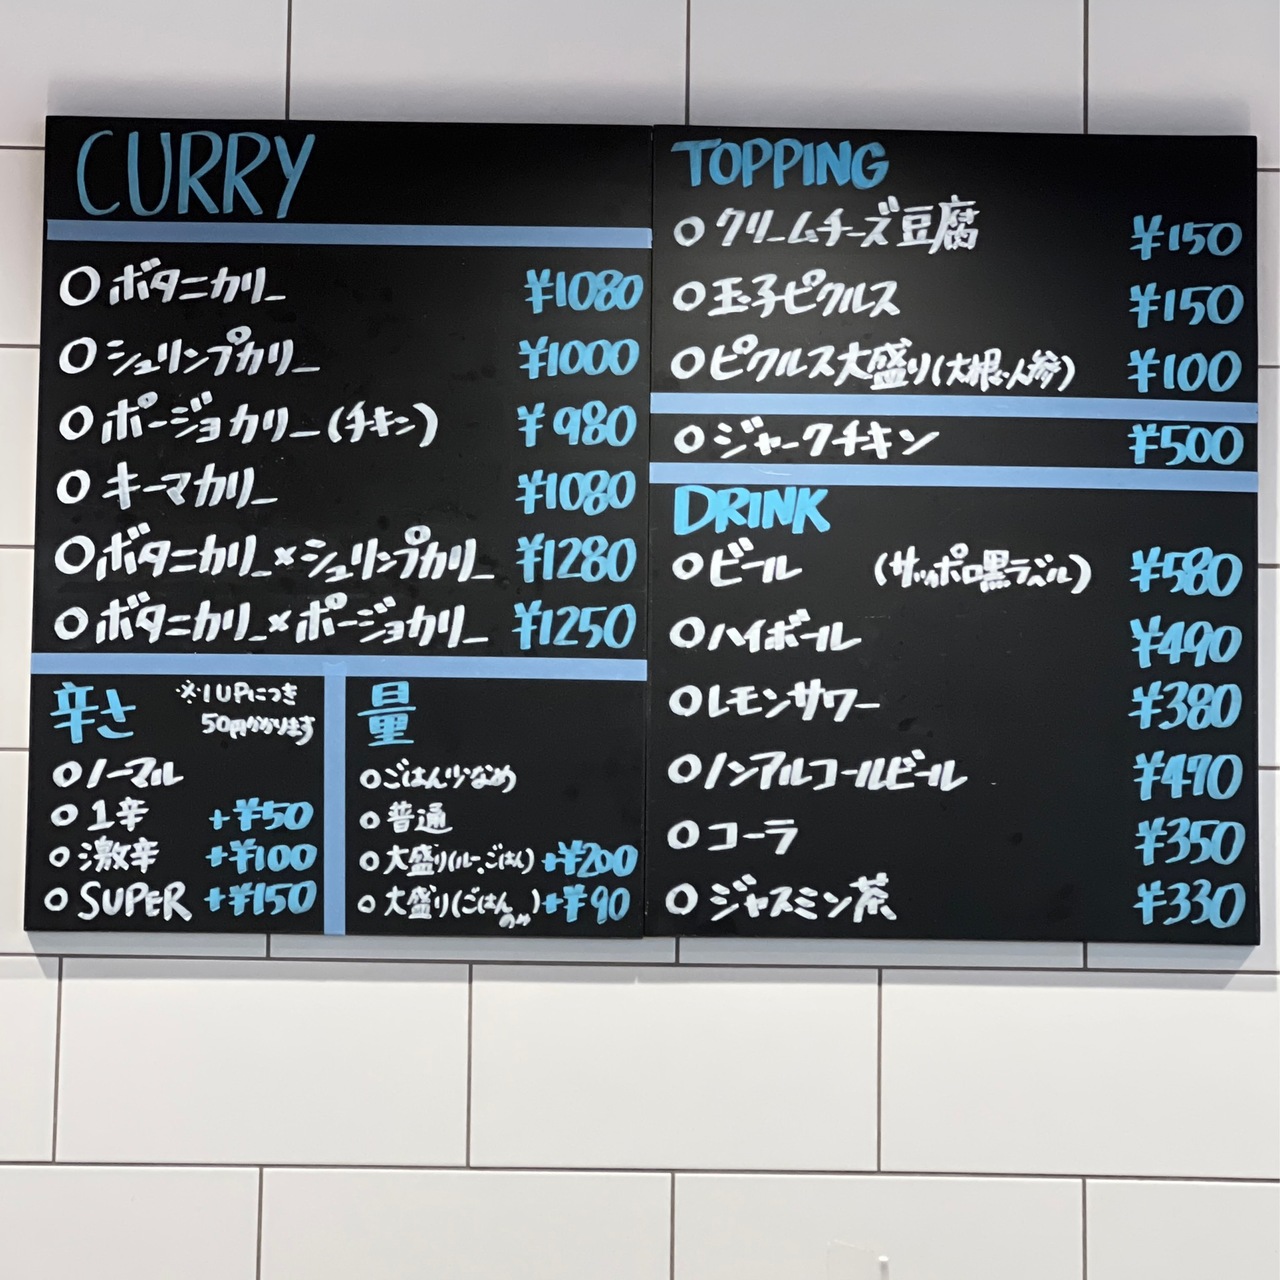 CURRY
○ボタニカリー ¥1080
○シュリンプカリー ¥1000
○ポージョカリー(チキン) ¥980
○キーマカリー ¥1080
○ボタニカリー×シュリンプカリー ¥1280
○ボタニカリー×ポージョカリー ¥1250
辛さ ※1UPにつき
50円かかります
○ノーマル
○1辛 +¥50
○激辛 +¥100
○SUPER +¥150
量
○ごはん少なめ
○普通
○大盛り(ルー、ごはん) +¥200
○大盛り(ごはんのみ) +¥90
TOPPING
○クリームチーズ豆腐 ¥150
○玉子ピクルス ¥150
○ピクルス大盛り(大根、人参) ¥100
○ジャークチキン ¥500
DRINK
○ビール (サッポロ黒ラベル) ¥580
○ハイボール ¥490
○レモンサワー ¥380
○ノンアルコールビール ¥470
○コーラ ¥350
○ジャスミン茶 ¥330